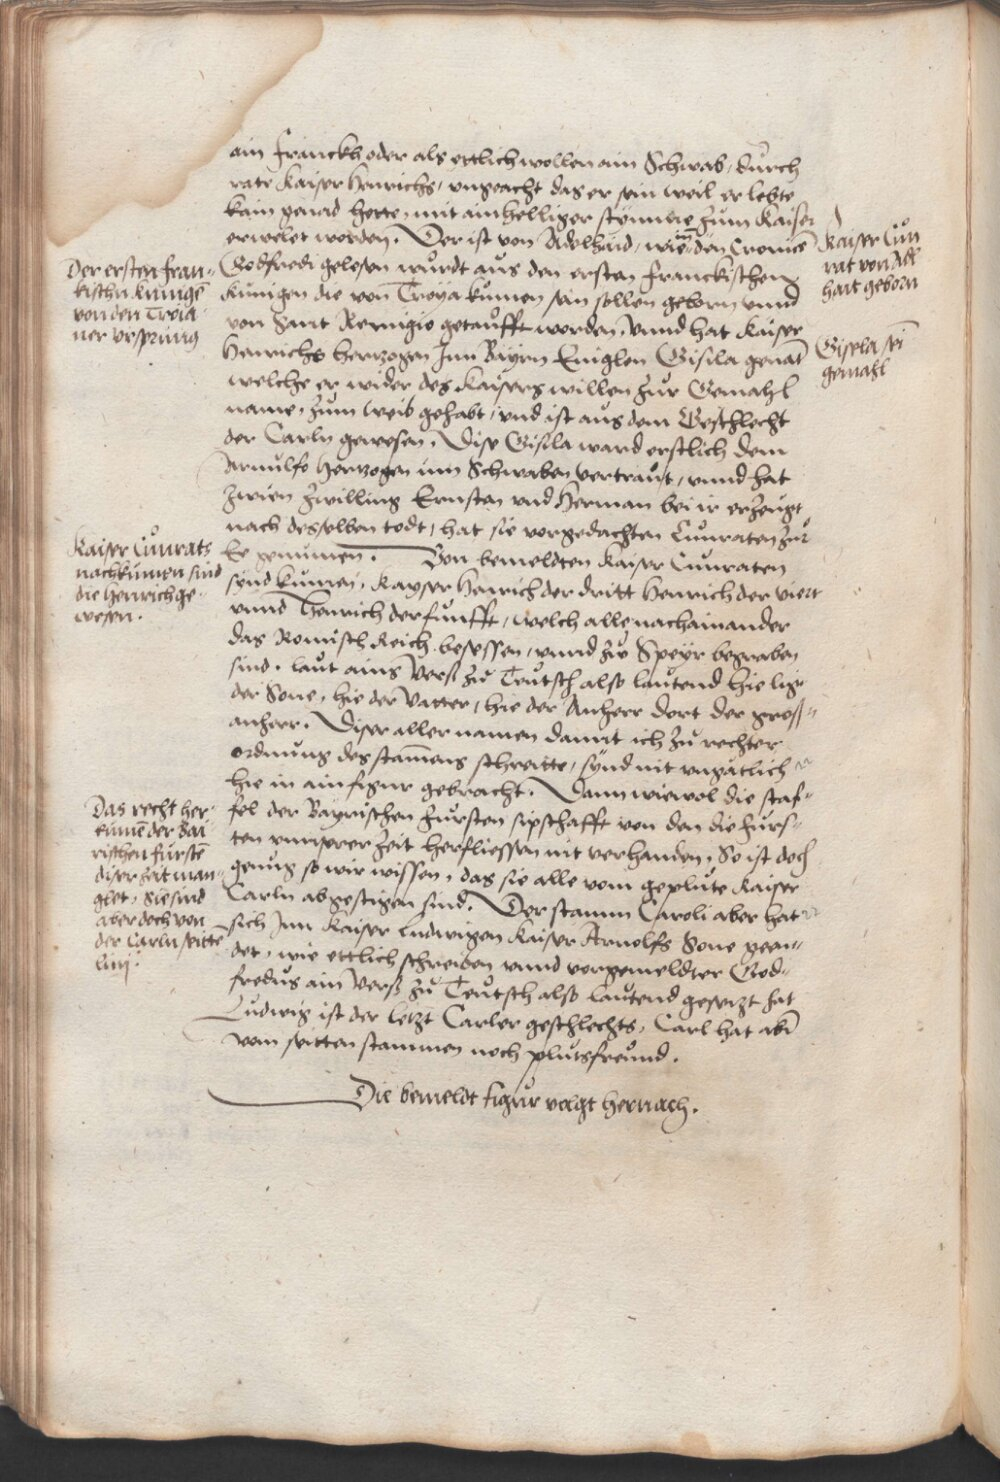 ain Franckh oder als ettlich wollen ain Schwab, durch
rate Kaiser Henrichs, ungeacht das er sein weil er lebte
kain genad hette, mit ainhelliger stymme zum Kaiser
erwelet worden. Der ist von Adelhaid, wie in den Cronicē
Godfridi gelesen wurdt aus den ersten Franckischen
Kunigen die von Troya kumen sein sollen geborn unnd
von Sant Remigio getaufft worden. Unnd hat Kaiser
Henrichs hertzogen Inn Bayrn Eniglen Gisila genāt
welche er wider des Kaisers willen zur Gemahl
name, zum weib gehabt, und ist aus dem Geschlecht
der Carln gewesen. Dise Gisila ward erstlich dem
Arnulfo Hertzogen inn Schwaben vertraut, unnd hat
zwien zwilling Ernsten und Herman bei ir erzeugt
nach desselben todt, hat sie vorgedachten Cunraten zur
Ee genumen. Von bemeldten Kaiser Cunraten
synd kumen, Kayser Henrich der dritt Henrich der viert
unnd Henrich der funfft, welch alle nachainander
das Romisch Reich besessen, unnd zu Speyr begraben
sind. laut ains verß zu Teutsch also lautend hie ligt
der Sone, hie der Vatter, hie der Anherr dort der groß-
anherr. Diser aller namen damit ich zu rechter
ordnung des stam̄ens schreitte, synd nit ungätlich
hie in ain figur gebracht. Dann wiewol die staf-
fel der Bayrischen Fursten sipschafft von den die furs-
ten unnserer zeit herfliessen nit verhanden, So ist doch
genug so wir wissen, das sie alle vom geplute Kaiser
Carln abgestigen sind. Der stamm Caroli aber hat
sich Inn Kaiser Ludwigen Kaiser Arnolfs Sone geen-
det, wie ettlich schreiben unnd vorgemeldter God-
fredus ain verß zu Teutsch also lautend gesetzt hat
Ludwig ist der letzt Carler geschlechts, Carl hat abr̄
vom seitten stammen noch plutsfreund.
Die bemeldt figur volgt hernach.
Der ersten Fran-
kischn kunigē
von den Troia-
ner ursprung
Kaiser Cunrats
nachkumen sind
die Henrich ge-
wesen.
Das recht her-
kumē der Bai
rischen furstē
diser zeit man-
glet, Sie sind
aber doch von
der Carln seittē
linj.
Kaiser Cun
rat von Adl
hait geborn
Gisela sei
gemahl